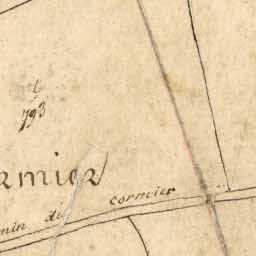 793
rmier
min du cormier